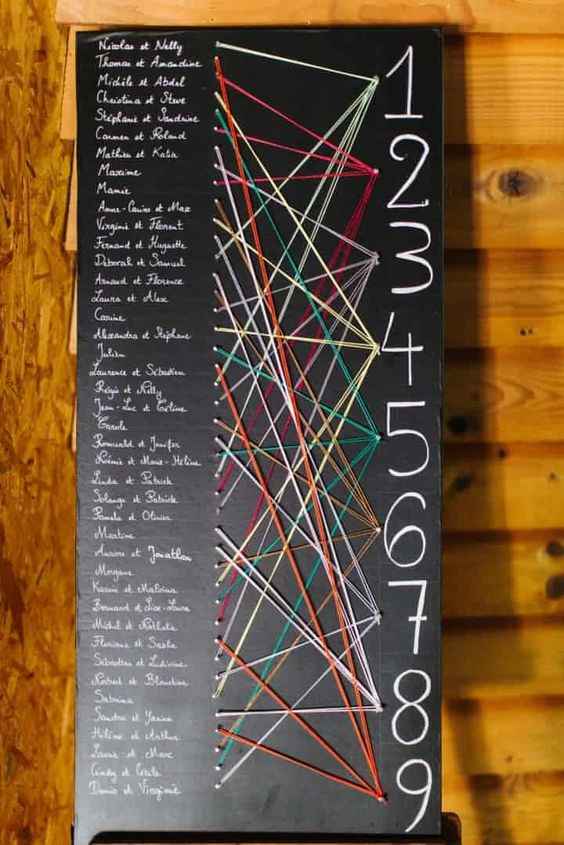 Nicolas et Nelly
Thomas et Amandine
Michèle et Abdel
Christina et Steve
Stéphanie et Sandrine
Carmen et Roland
Mathieu et Katia
Maxime
Mamie
Anne-Cécire et Max
Virginie et Florent
Fernand et Huguette
Deborah et Samuel
Arnaud et Florence
Laura et Alex
Carine
Alexandra et Stéphane
Julien
Laurence et Sébastien
Régis et Nelly
Jean-Luc et Céline
Carole
Romuald et Jenifer
Noémie et Marie-Hélène
Linda et Patrick
Solange et Patrick
Pamela et Olivier
Martine
Aurore et Jonathan
Morgane
Karine et
Bernard et Lise-Laure
Michel et Nathalie
Floriane et
Sébastien et Ludivine
Robert et Blandine
Sabrina
Sandra et Yanice
Hélène et Arthur
Laura et Marc
Cindy et
Denis et Virginie
1
2
3
4
5
6
7
8
9